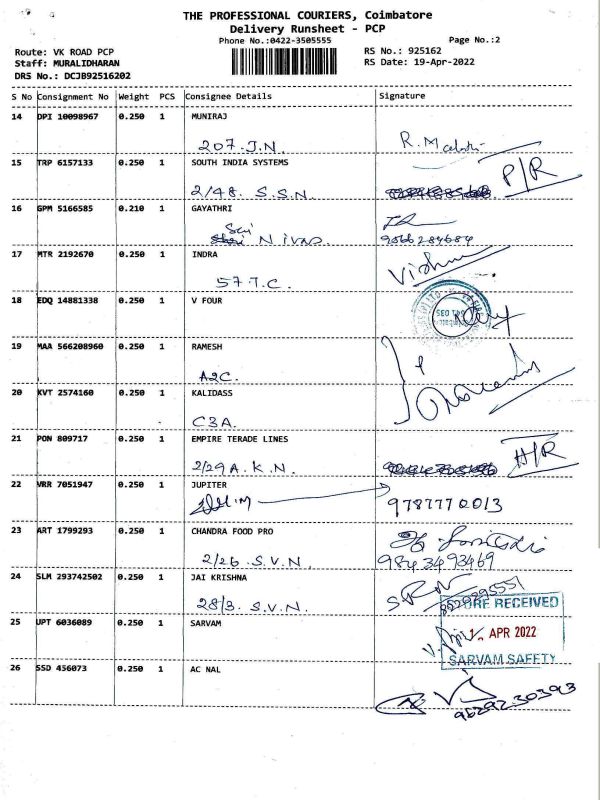 THE PROFESSIONAL COURIERS, Coimbatore
Delivery Runsheet - PCP
Phone No.:0422-3505555
Page No.:2
Route: VK ROAD PCP
RS No.: 925162
Staff: MURALIDHARAN
RS Date: 19-Apr-2022
DRS No.: DCJB92516202
S No Consignment No Weight PCS Consignee Details Signature
14 DPI 10098967 0.250 1 MUNIRAJ
207 J.N.
15 TRP 6157133 0.250 1 SOUTH INDIA SYSTEMS
P/R
2/48. S.S.N.
16 GPM 5166585 0.210 1 GAYATHRI
Sai Nivas 9566284684
17 MTR 2192670 0.250 1 INDRA
57 T.C.
18 EDQ 14881338 0.250 1 V FOUR
19 MAA 566208960 0.250 1 RAMESH
A2C.
20 KVT 2574160 0.250 1 KALIDASS
C3A.
21 PON 809717 0.250 1 EMPIRE TERADE LINES
H/R
2/29 A. K. N.
22 VRR 7051947 0.250 1 JUPITER
9787770013
23 ART 1799293 0.250 1 CHANDRA FOOD PRO
2/26 S.V.N. 9843493469
24 SLM 293742502 0.250 1 JAI KRISHNA
28/3. S.V.N.
RECEIVED
25 UPT 6036089 0.250 1 SARVAM
APR 2022
SARVAM SAFETY
26 SSD 456073 0.250 1 AC NAL
9629230393